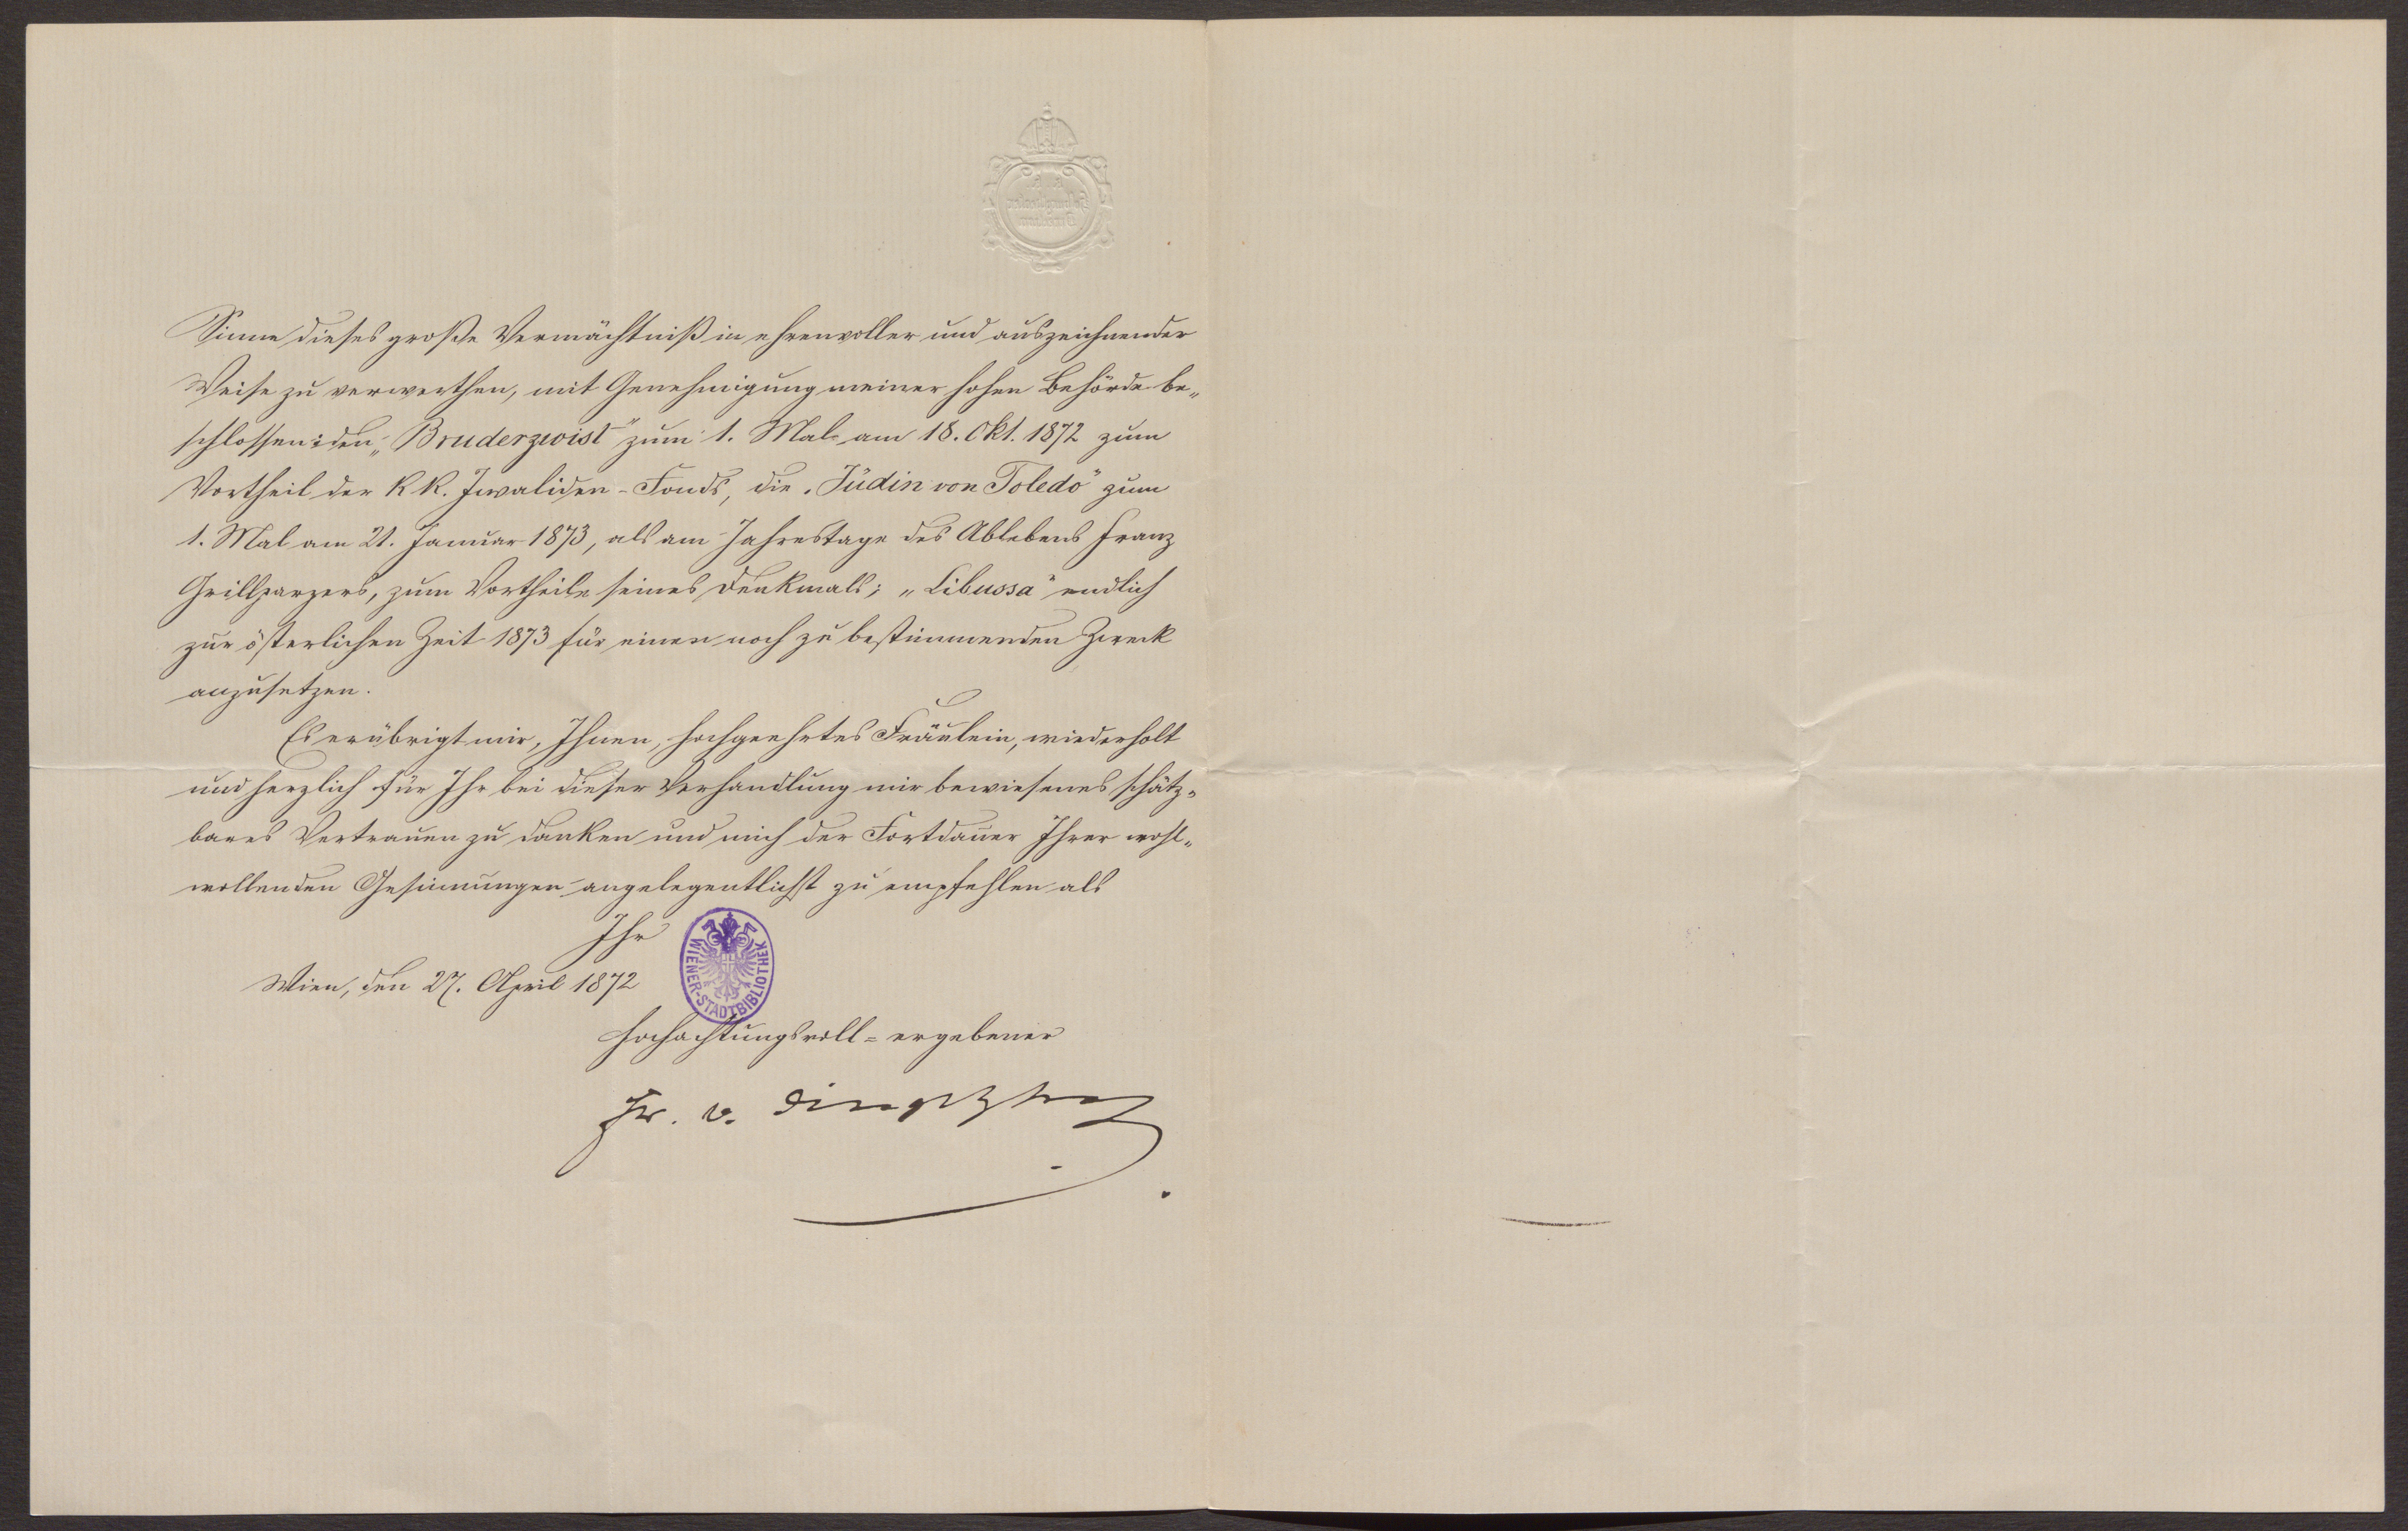 Sinne dieses große Vermächtniß in ehrenvoller und auszeichnender
Weise zu verwerthen, mit Genehmigung meiner hohen Behörde be„
schlossen: den „Bruderzwist" zum 1. Mal am 18. Okt. 1872 zum
Vortheil der k k. Invaliden-Fonds, die „Jüdin von Toledo" zum
1. Mal am 21. Januar 1873, als am Jahrestage des Ablebens Franz
Grillparzers, zum Vortheile seines Denkmals; „Libussa" endlich
zur österlichen Zeit 1873 für einen noch zu bestimmenden Zweck
anzusetzen.
Es erübrigt mir, Ihnen, hochgeehrtes Fräulein, wiederholt
und herzlich für Ihr bei dieser Verhandlung mir bewiesenes schätz„
bares Vertrauen zu danken und mich der Fortdauer Ihrer wohl„
wollenden Gesinnungen angelegentlichst zu empfehlen als
Ihr
WIENER-STADTBIBLIOTHEK
Wien, den 27. April 1872
hochachtungsvoll=ergebener
Fr. v. Dingelstedt